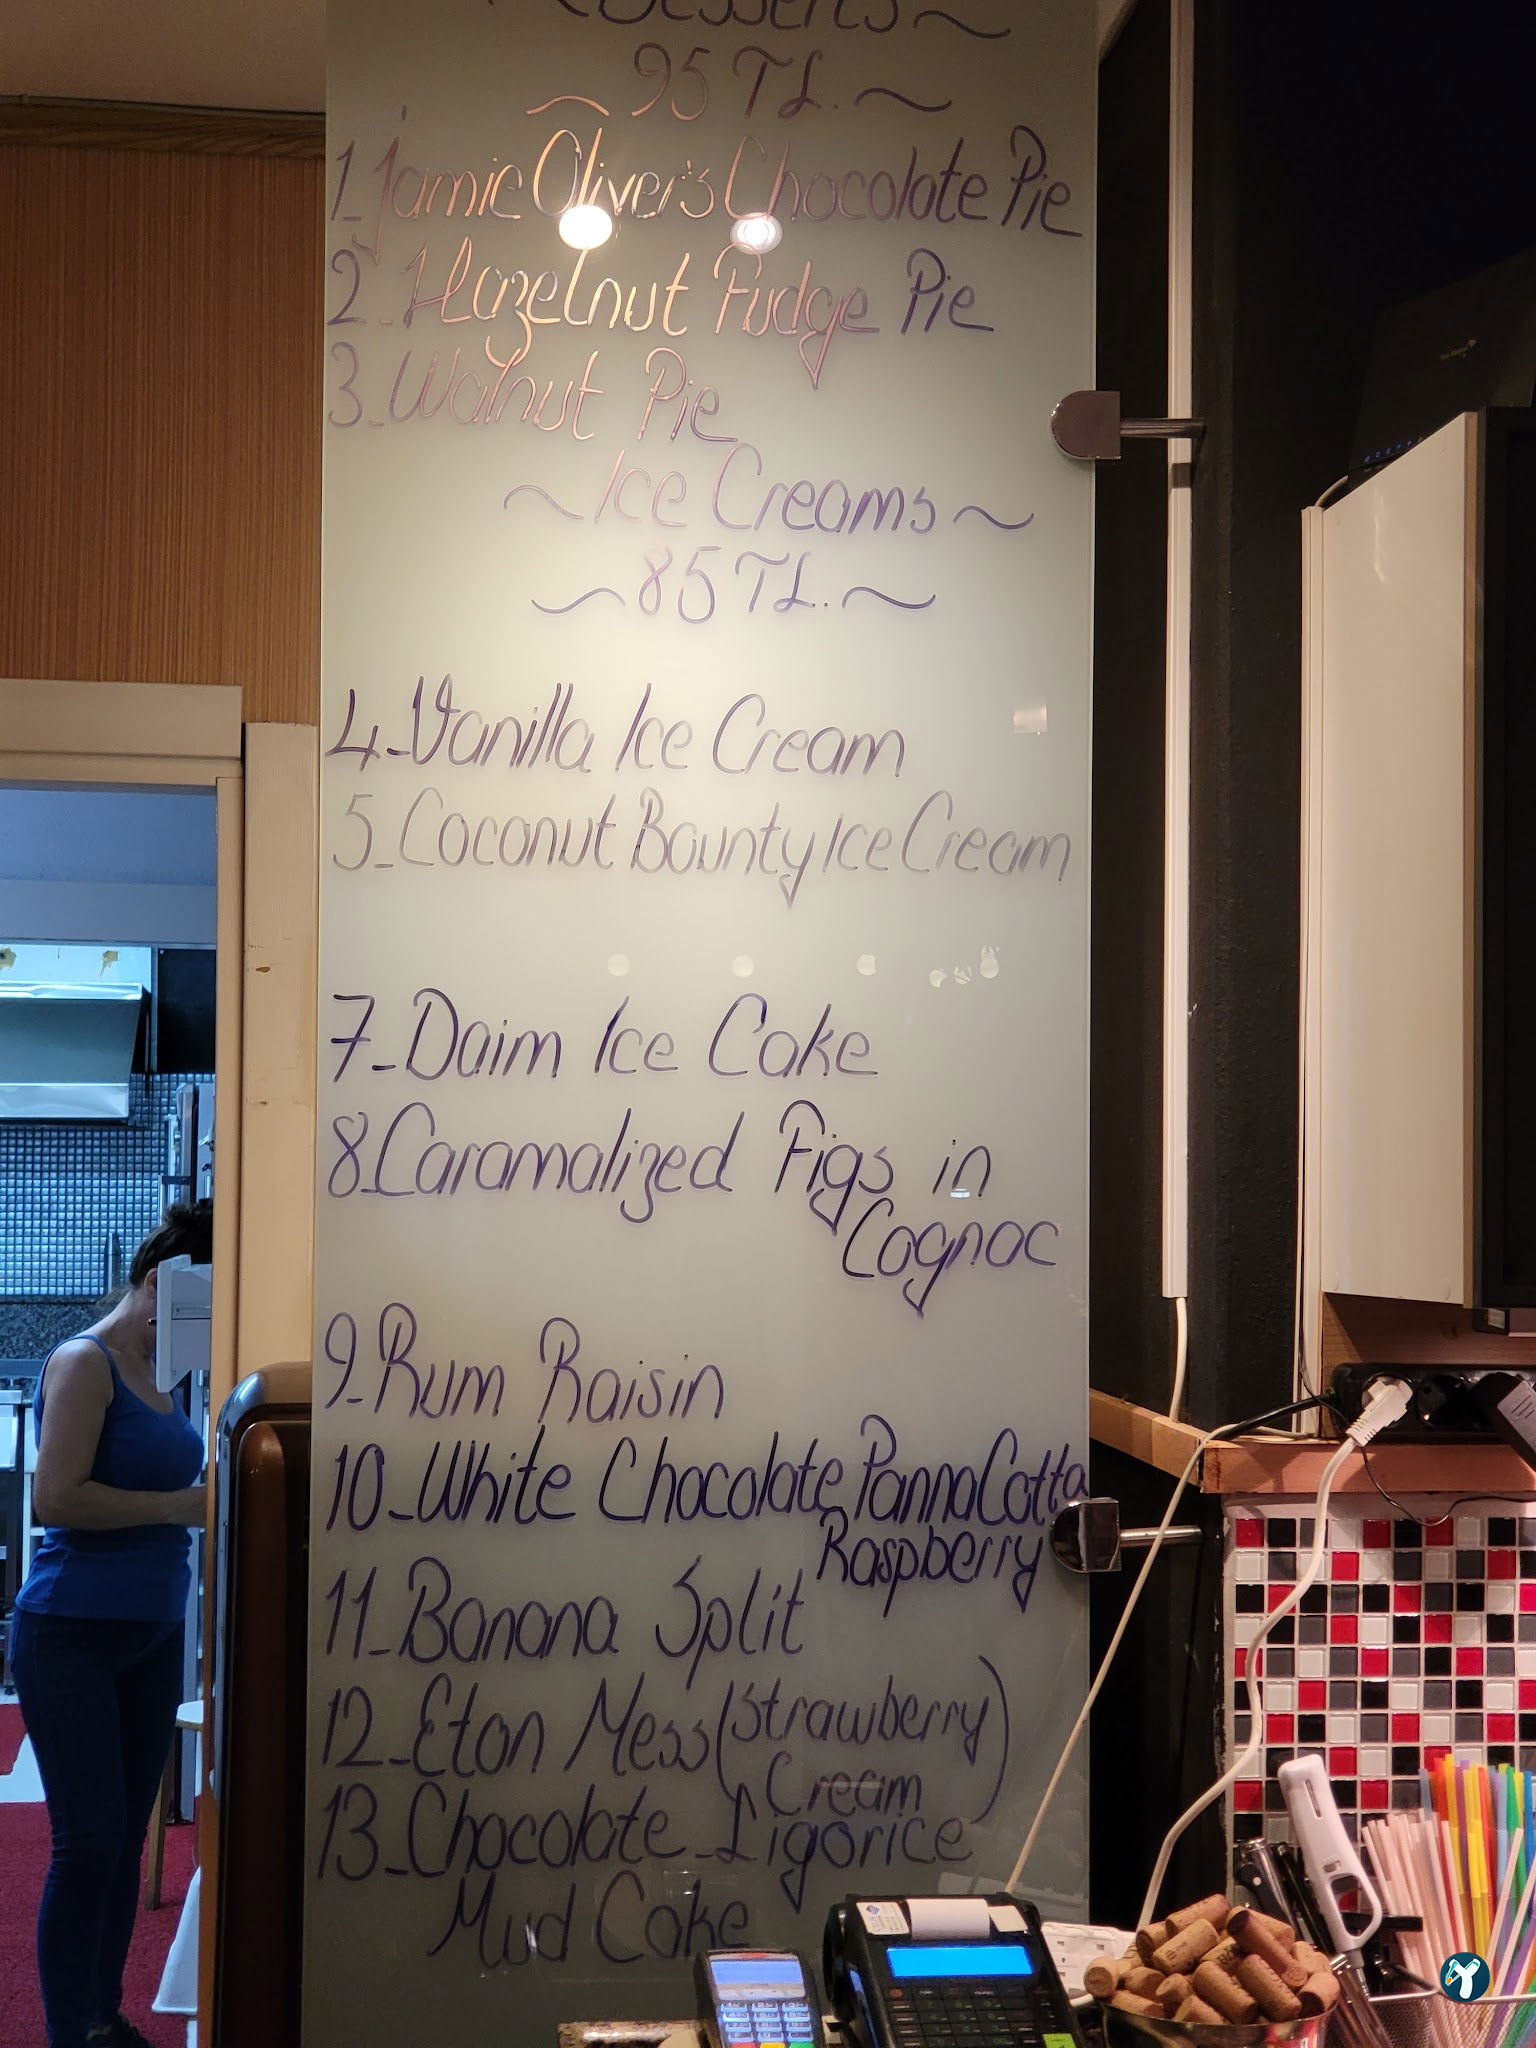 ~Desserts~
~95 TL.~
1_Jamie Oliver's Chocolate Pie
2_Hazelnut Fudge Pie
3_Walnut Pie
~Ice Creams~
~85 TL.~
4_Vanilla Ice Cream
5_Coconut Bounty Ice Cream
7_Daim Ice Cake
8_Caramalized Figs in
Cognac
9_Rum Raisin
10_White Chocolate PannaCotta
Raspberry
11_Banana Split
12_Eton Mess (Strawberry
Cream)
13_Chocolate_Ligorice
Mud Cake